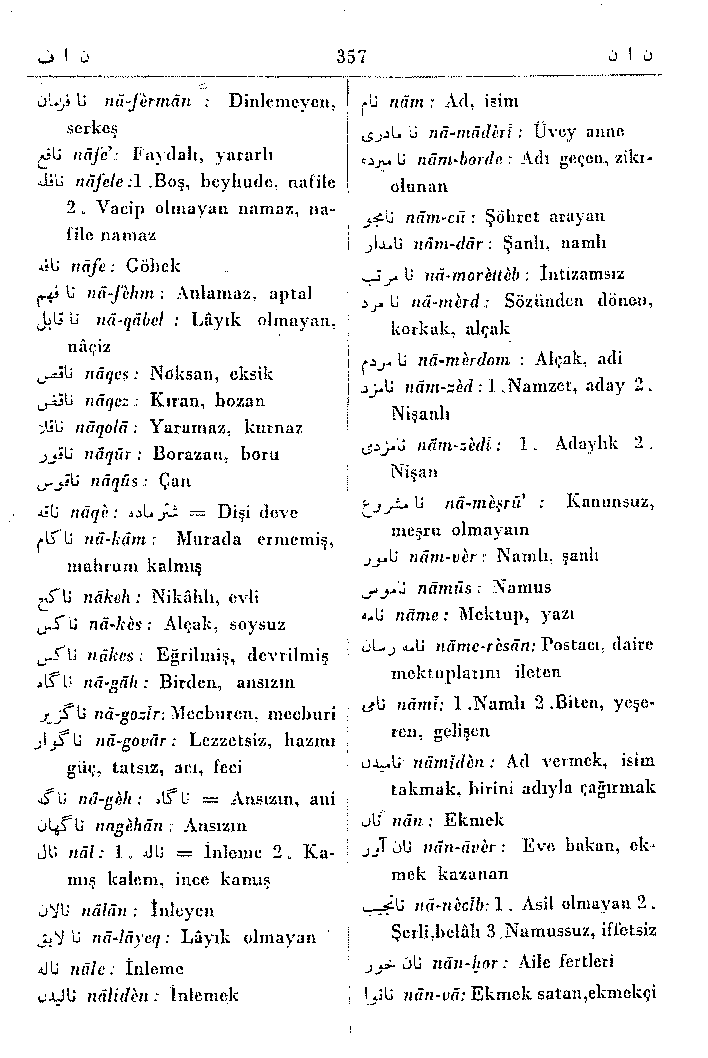 ن ا ف
357
ن ا ن
نا فرمان nā-fèrmān : Dinlemeyen,
serkeş
نافع nāfe': Faydalı, yararlı
نافله nāfele:1 .Boş, beyhude, nafile
2 . Vacip olmayan namaz, na-
file namaz
نافه nāfe : Göbek
نا فهم nā-fèhm : Anlamaz, aptal
نا قابل nā-qābel : Lâyık olmayan,
nâçiz
ناقص nāqes : Noksan, eksik
ناقض nāqez : Kıran, bozan
ناقلا nāqolā : Yaramaz, kurnaz
ناقور nāqūr : Borazan, boru
ناقوس nāqūs : Çan
ناقه nāqè : شتر ماده = Dişi deve
نا کام nā-kâm : Murada ermemiş,
mahrum kalmış
ناکح nākeh : Nikâhlı, evli
نا کس nā-kès : Alçak, soysuz
ناکس nākes : Eğrilmiş, devrilmiş
نا گاه nā-gāh : Birden, ansızın
نا گزیر nā-gozīr: Mecburen, mecburi
نا گوار nā-govār : Lezzetsiz, hazmı
güç, tatsız, acı, feci
نا گه nā-gèh : نا گاه = Ansızın, ani
نا گهان nagèhān : Ansızın
نال nāl : 1 . ناله = İnleme 2 . Ka-
mış kalem, ince kamış
نالان nālān : İnleyen
نا لایق nā-lāyeq : Lâyık olmayan
ناله nāle : İnleme
نالیدن nālīdèn : İnlemek
نام nām : Ad, isim
نا مادری nā-māderī : Üvey anne
نا مبرده nām-borde : Adı geçen, zikr-
olunan
نامجو nām-cū : Şöhret arayan
نامدار nām-dār : Şanlı, namlı
نا مرتب nā-morèttèb : İntizamsız
نا مرد nā-mèrd : Sözünden dönen,
korkak, alçak
نا مردم nā-mèrdom : Alçak, adi
نامزد nām-zèd : 1 .Namzet, aday 2 .
Nişanlı
نامزدی nām-zèdī : 1 . Adaylık 2 .
Nişan
نا مشروع nā-mèşrū' : Kanunsuz,
meşru olmayan
نامور nām-vèr : Namlı, şanlı
ناموس nāmūs : Namus
نامه nāme : Mektup, yazı
نامه رسان nāme-resān: Postacı, daire
mektuplarını ileten
نامی nāmī: 1 .Namlı 2 .Biten, yeşe-
ren, gelişen
نامیدن nāmīdèn : Ad vermek, isim
takmak, birini adıyla çağırmak
نان nān : Ekmek
نان آور nān-āvèr : Eve bakan, ek-
mek kazanan
نانجیب nā-nècīb: 1 . Asil olmayan 2 .
Şerli,belâlı 3 .Namussuz, iffetsiz
نان خور nān-hor : Aile fertleri
نانوا nān-vā: Ekmek satan,ekmekçi